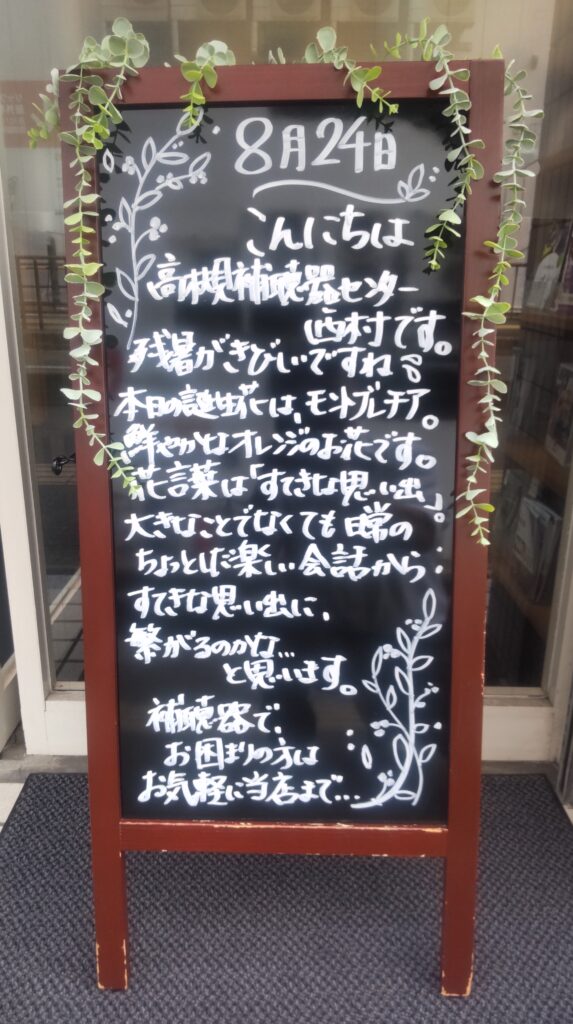 8月24日
こんにちは
高槻補聴器センター
西村です。
残暑がきびしいですね。
本日の誕生花は、モントブレチア。
鮮やかなオレンジのお花です。
花言葉は「すてきな思い出」。
大きなことでなくても日常の
ちょっとした楽しい会話から
すてきな思い出に、
繋がるのかな...
と思います。
補聴器で、
お困まりの方は
お気軽に当店まで...